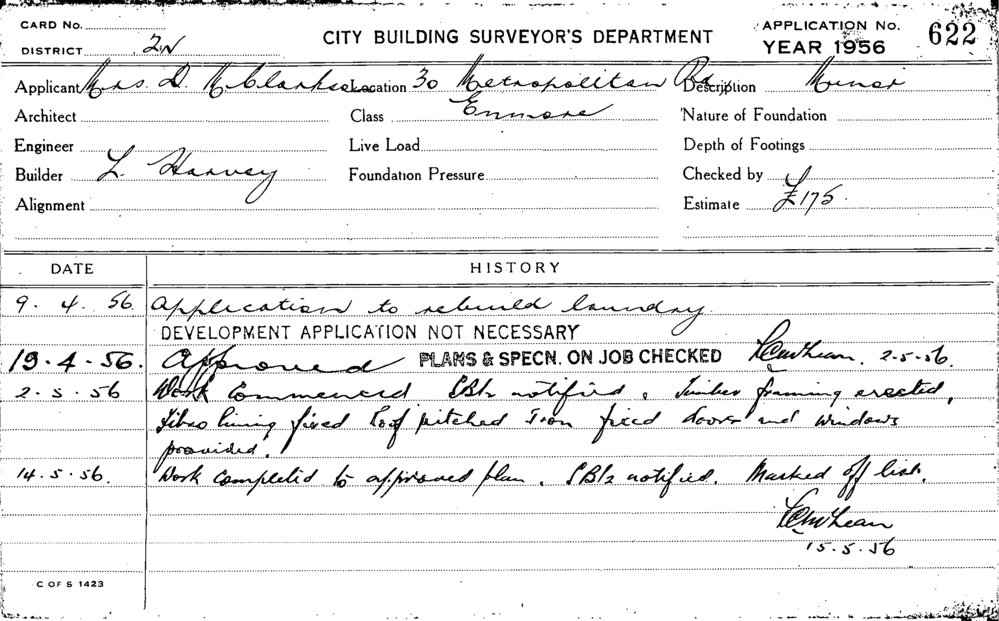 CARD No.
DISTRICT 2N
CITY BUILDING SURVEYOR'S DEPARTMENT
APPLICATION No. 622
YEAR 1956
Applicant Mrs. D. McClarkson Location 30 Metropolitan Rd, Description Minor
Architect Class Enmore Nature of Foundation
Engineer Live Load Depth of Footings
Builder L. Harvey Foundation Pressure Checked by
Alignment Estimate £175.
DATE HISTORY
9. 4. 56. Application to rebuild laundry
DEVELOPMENT APPLICATION NOT NECESSARY
19-4-56. Approved PLANS & SPECN. ON JOB CHECKED 2-5-56.
2-5-56 Work Commenced. notified. Timber framing erected,
Fibro lining fixed Roof pitched Iron fixed doors and windows
provided.
14.5.56. Work completed to approved plan. notified. Marked off list.
15.5.56
C OF S 1423